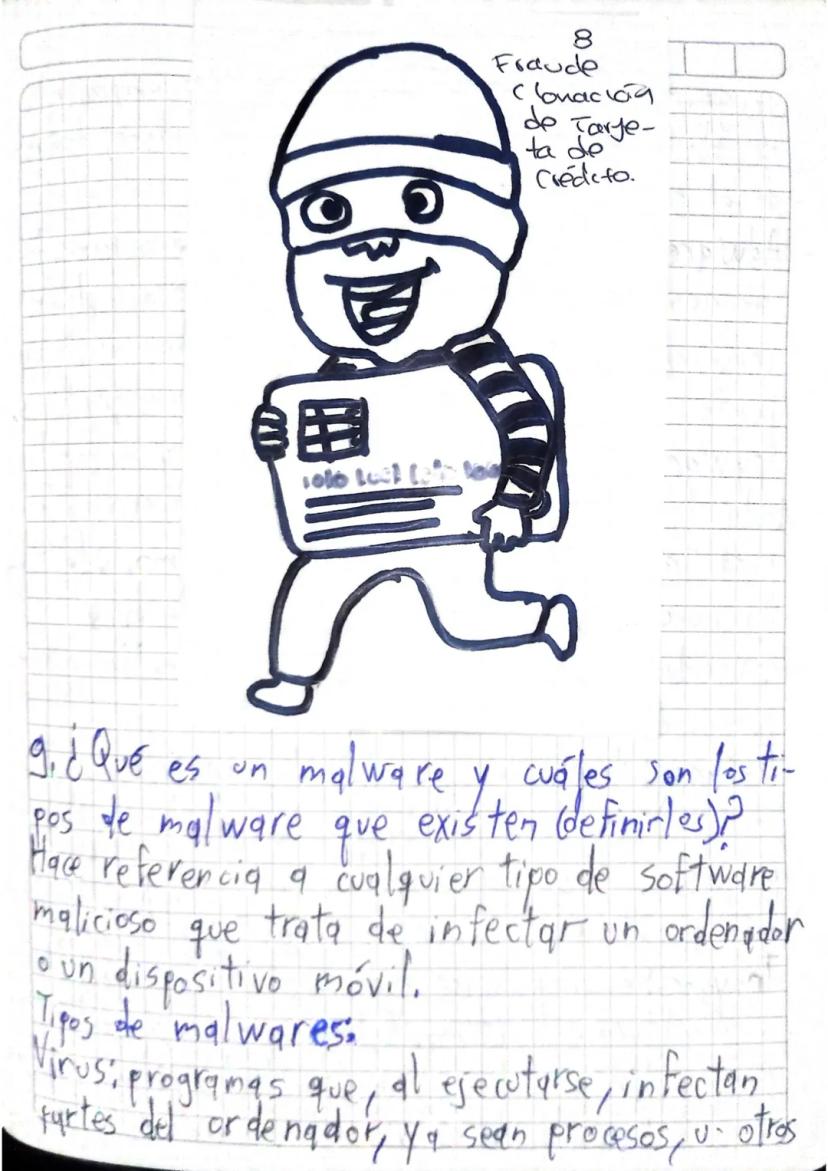 8
Fraude
Clonación
de Tarje-
ta de
Crédito.
9. ¿Qué es un malware y cuáles son los ti-
pos de malware que existen (definirles)?
Hace referencia a cualquier tipo de software
malicioso que trata de infectar un ordenador
o un dispositivo móvil.
Tipos de malwares:
Virus: programas que, al ejecutarse, infectan
partes del ordenador, ya sean procesos, u otros